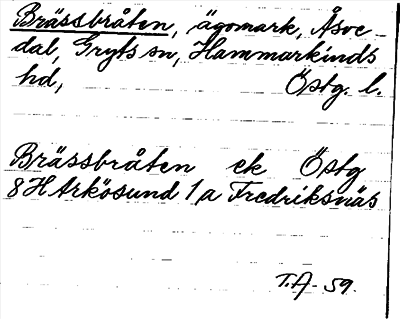 Brässbråten, ägomark, Åsve-
dal, Gryts sn, Hammarkinds
hd, Östg. l.
Brässbråten ek Östg
8 H Arkösund 1 a Fredriksnäs
T.A- 59.